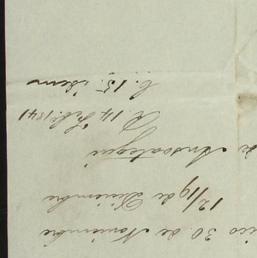 ico 30. de Noviembre
12/19 de Diciembre
de Ansoategui
R. 14 Feb. 1841
C. 15. idem